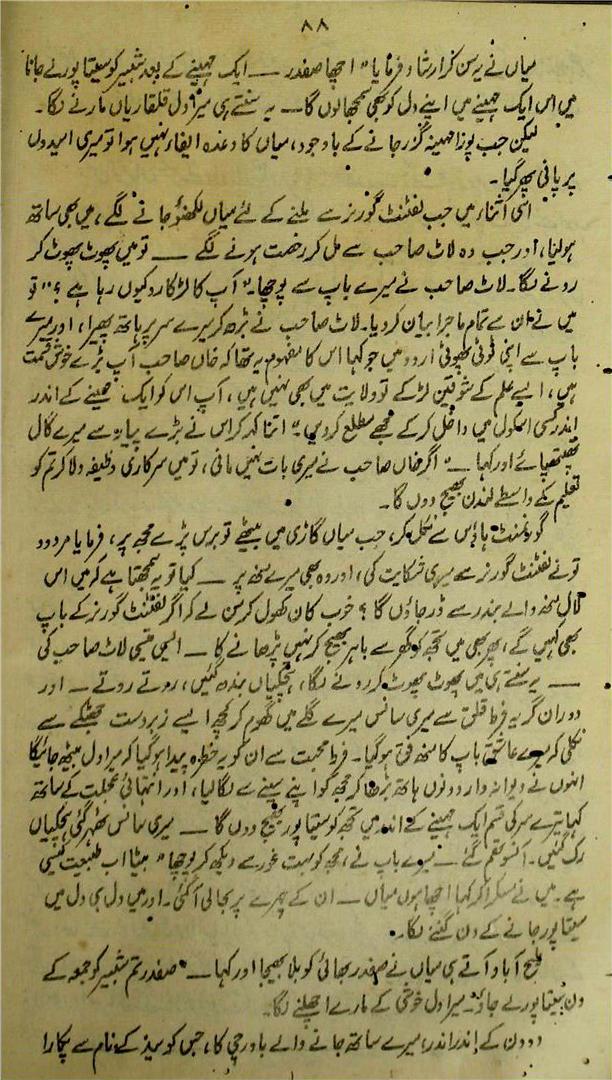 ۸۸
میاں نے یہ سن کر ارشاد فرمایا "اچھا صفدر — ایک مہینے کے بعد شبیر کو سیتاپور لے جانا
میں اس ایک مہینے میں اپنے دل کو بھی سمجھا لوں گا — یہ سنتے ہی میرا دل قلقاریاں مارنے لگا۔
لیکن جب پورا مہینہ گزر جانے کے باوجود، میاں کا وعدہ ایفاء نہیں ہوا تو میری امیدوں
پر پانی پھر گیا۔
اسی اثناء میں جب لفٹنٹ گورنر سے ملنے کے لئے میاں لکھنؤ جانے لگے، میں بھی ساتھ
ہولیا، اور جب وہ لاٹ صاحب سے مل کر رخصت ہونے لگے — تو میں پھوٹ پھوٹ کر
رونے لگا۔ لاٹ صاحب نے میرے باپ سے پوچھا۔ "آپ کا لڑکا رو کیوں رہا ہے؟" تو
میں نے ان سے تمام ماجرا بیان کردیا۔ لاٹ صاحب نے بڑھ کر میرے سر پر ہاتھ پھیرا، اور میرے
باپ سے اپنی ٹوٹی پھوٹی اردو میں جو کہا اس کا مفہوم یہ تھا کہ خاں صاحب آپ بڑے خوش قسمت
ہیں، ایسے علم کے شوقین لڑکے تو ولایت میں بھی نہیں ہیں، آپ اس کو ایک مہینے کے اندر
اندر کسی اسکول میں داخل کرکے مجھے مطلع کردیں۔" اتنا کہہ کر اس نے بڑے پیار سے میرے گال
تھپتھپائے اور کہا — "اگر خاں صاحب نے میری بات نہیں مانی، تو میں سرکاری وظیفہ دلا کر تم کو
تعلیم کے واسطے لندن بھیج دوں گا۔
گورنمنٹ ہاؤس سے نکل کر، جب میاں گاڑی میں بیٹھے تو برس پڑے مجھ پر، فرمایا مردود
تو نے لفٹنٹ گورنر سے میری شکایت کی، اور وہ بھی میرے منھ پر — کیا تو یہ سمجھتا ہے کہ میں اس
لال منھ والے بندر سے ڈر جاؤں گا؟ خوب کان کھول کر سن لے کہ اگر لفٹنٹ گورنر کے باپ
بھی کہیں گے، پھر بھی میں تجھ کو گھر سے باہر بھیج کر نہیں پڑھانے کا — ایسی تیسی لاٹ صاحب کی
— یہ سنتے ہی میں پھوٹ پھوٹ کر رونے لگا، ہچکیاں بندھ گئیں، روتے روتے — اور
دوران گریہ فرط قلق سے میری سانس میرے گلے میں گھوم کر کچھ ایسے زبردست جھٹکے سے
نکلی کہ میرے عاشق باپ کا منھ فق ہوگیا۔ فرط محبت سے ان کو یہ خطرہ پیدا ہوگیا کہ میرا دل بیٹھ جائیگا
انہوں نے دیوانہ وار دونوں ہاتھ بڑھا کر مجھ کو اپنے سینے سے لگا لیا، اور انتہائی عجلت کے ساتھ
کہا تیرے سر کی قسم ایک مہینے کے اندر میں تجھ کو سیتاپور بھیج دوں گا — میری سانس ٹھہر گئی ہچکیاں
رک گئیں۔ آنسو تھم گئے — میرے باپ نے، مجھ کو بہت غور سے دیکھ کر پوچھا "بیٹا اب طبیعت کیسی
ہے۔ میں نے مسکرا کر کہا اچھا ہوں میاں — ان کے چہرے پر بحالی آگئی۔ اور میں دل ہی دل میں
سیتاپور جانے کے دن گننے لگا۔
ملیح آباد آتے ہی میاں نے صفدر بھائی کو بلا بھیجا اور کہا — "صفدر تم شبیر کو جمعہ کے
دن سیتاپور لے جاؤ۔ میرا دل خوشی کے مارے اچھلنے لگا۔
دو دن کے اندر اندر، میرے ساتھ جانے والے باورچی کا، جس کو کے نام سے پکارا